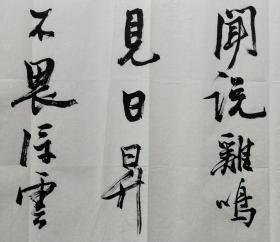 聞説雞鳴
見日昇
不畏浮雲